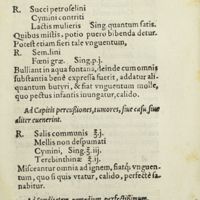 R. Succi petroselini
Cymini contriti
Lactis mulieris Sing. quantum satis.
Quibus mistis, potio puero bibenda detur.
Potest etiam fieri tale vnguentum,
R. Sem. lini
Fœni græ. Sing. p.j.
Bulliant in aqua fontana, deinde cum omnis
substantia benè expressa fuerit, addatur ali-
quantum butyri, & fiat vnguentum molle,
quo pectus infantis iniungito, calido.
Ad Capitis percussiones, tumores, siue casu siue
aliter euenerint.
R. Salis communis ℥.j.
Mellis non despumati
Cymini, Sing. ℥.iij.
Terebinthinæ ℥.ij.
Misceantur omnia ad ignem, fiatq́; vnguen-
tum, quo si quis vtatur, calido, perfectè sa-
nabitur.